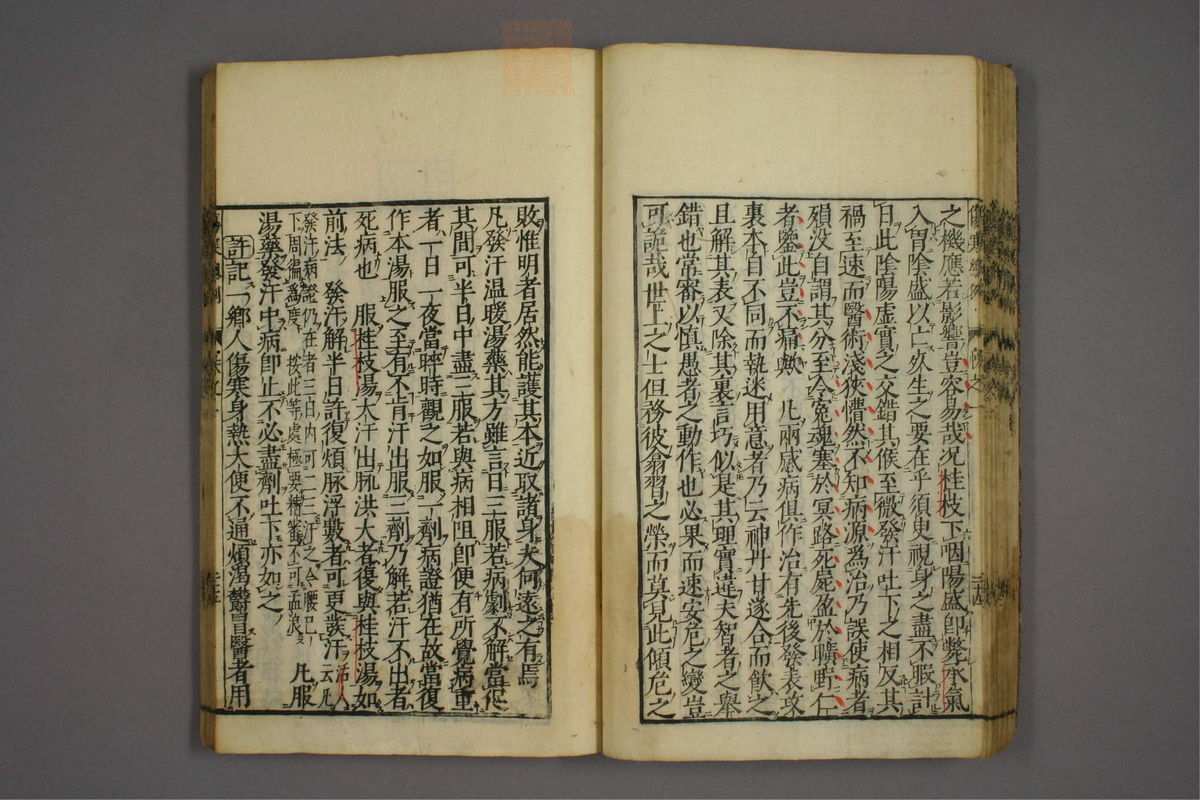 之機應若影響豈容易哉况桂枝下咽陽盛即斃承氣
入胃陰盛以亡死生之要在乎須臾視身之盡不暇計
日此陰陽虛實之交錯其候至微發汗吐下之相反其
禍至速而醫術淺狹懵然不知病源爲治乃誤使病者
殞没自謂其分至令寃魂塞於冥路死屍盈於曠野仁
者鑒此豈不痛歟　凡兩感病俱作治有先後發表攻
裏本自不同而執迷用意者乃云神丹甘遂合而飲之
且解其表又除其裏言巧似是其理實違夫智者之舉
錯也常審以慎愚者之動作也必果而速安危之變豈
可詭哉世上之士但務彼翕習之榮而莫見此傾危之
敗惟明者居然能護其本近取諸身夫何遠之有焉
凡發汗温暖湯藥其方雖言日三服若病劇不解當促
其間可半日中盡三服若與病相阻即便有所覺病重
者一日一夜當晬時觀之如服一劑病證猶在故當復
作本湯服之至有不肯汗出服三劑乃解若汗不出者
死病也　服桂枝湯大汗出脉洪大者復與桂枝湯如
前法　發汗解半日許復煩脉浮數者可更發汗活人云凡
發汗病證仍在者三日内可二三汗之令腰已
下周徧爲度　按此等處極要精審不可孟浪　凡服
湯藥發汗中病即止不必盡劑吐下亦如之
許記一鄉人傷寒身熱大便不通煩渴鬱冒醫者用